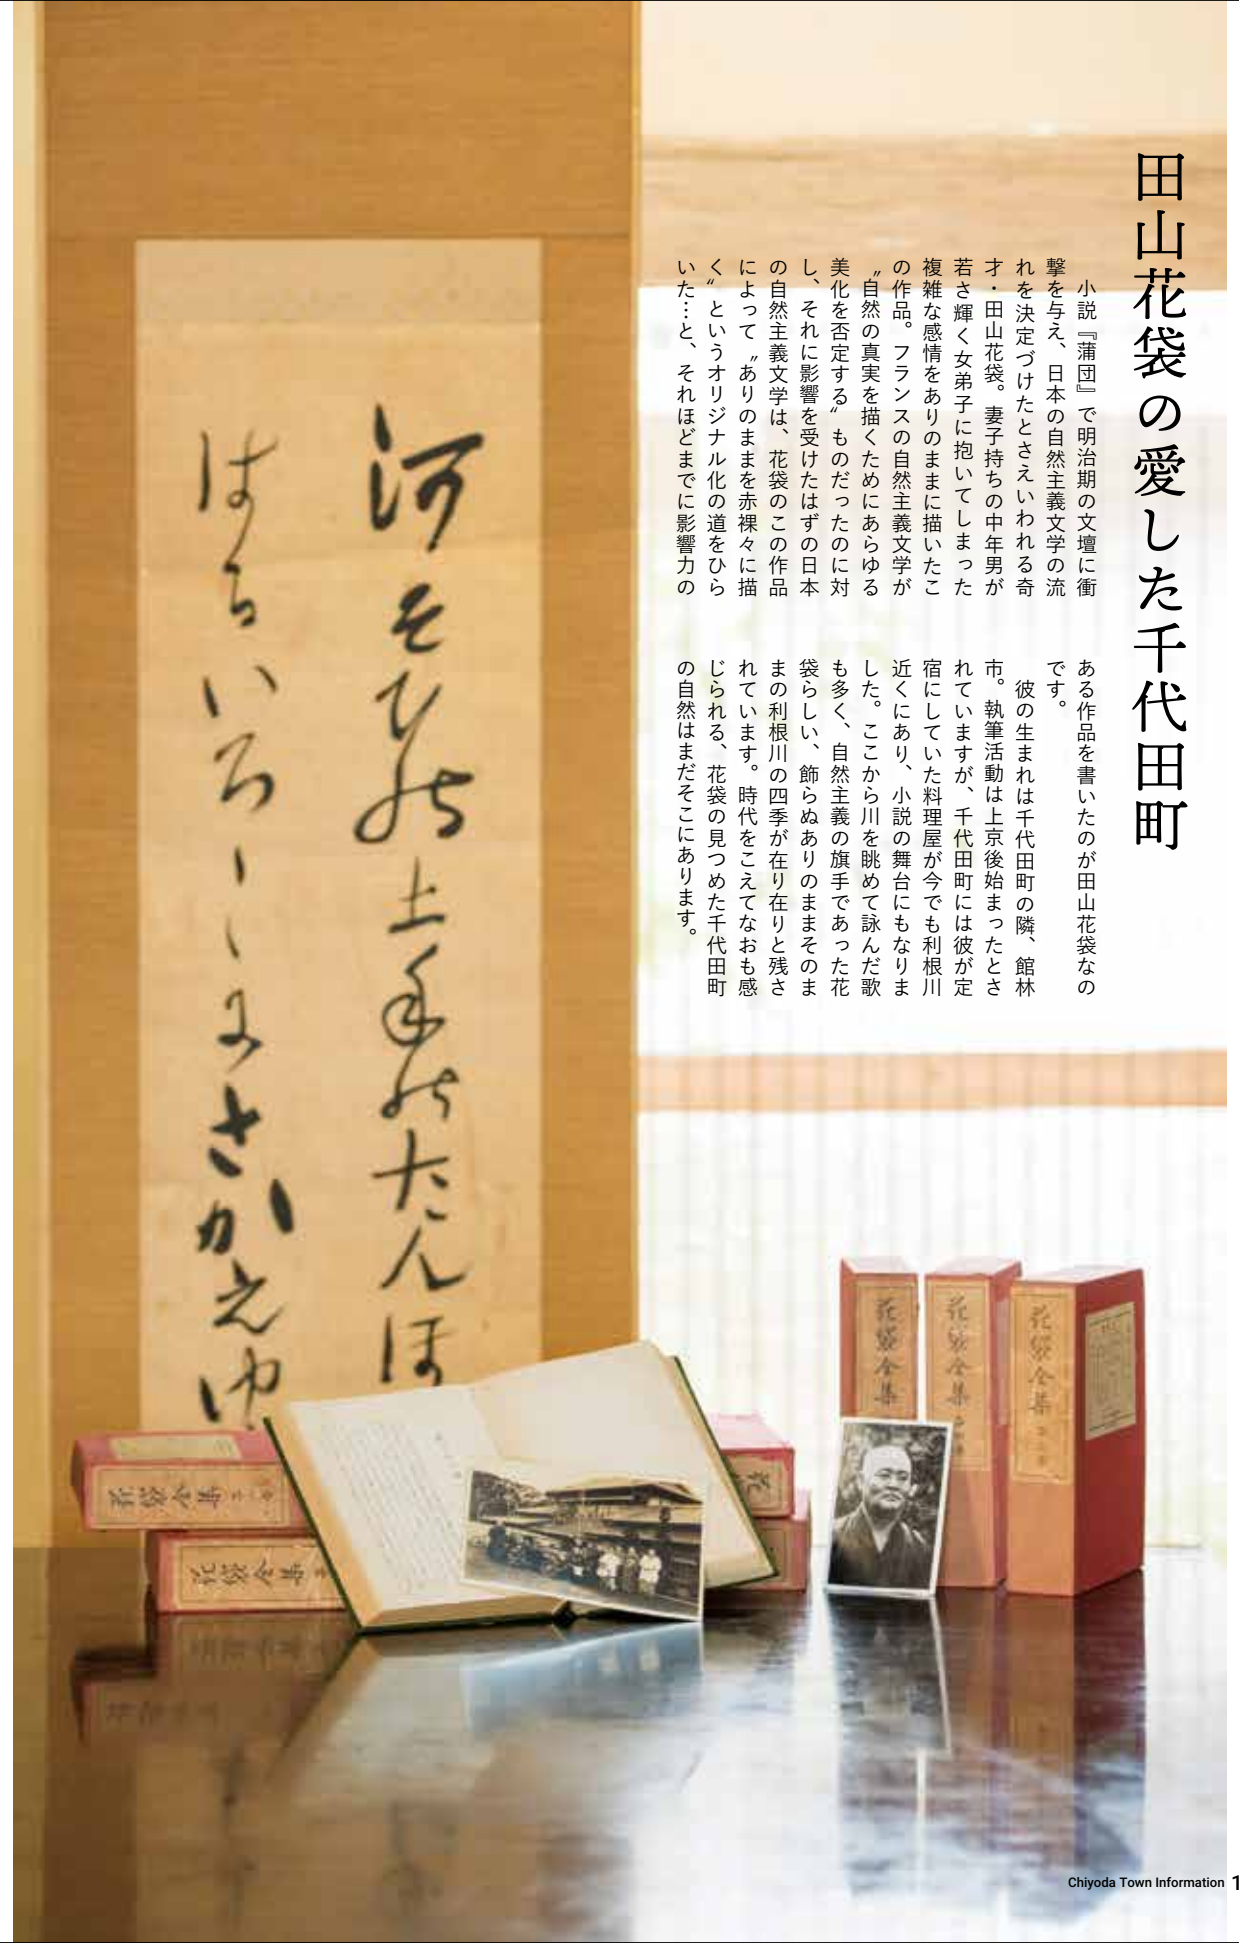 田山花袋の愛した千代田町
小説『蒲団』で明治期の文壇に衝
撃を与え、日本の自然主義文学の流
れを決定づけたとさえいわれる奇
才・田山花袋。妻子持ちの中年男が
若さ輝く女弟子に抱いてしまった
複雑な感情をありのままに描いたこ
の作品。フランスの自然主義文学が
〝自然の真実を描くためにあらゆる
美化を否定する〟ものだったのに対
し、それに影響を受けたはずの日本
の自然主義文学は、花袋のこの作品
によって〝ありのままを赤裸々に描
く〟というオリジナル化の道をひら
いた…と、それほどまでに影響力の
ある作品を書いたのが田山花袋なの
です。
彼の生まれは千代田町の隣、館林
市。執筆活動は上京後始まったとさ
れていますが、千代田町には彼が定
宿にしていた料理屋が今でも利根川
近くにあり、小説の舞台にもなりま
した。ここから川を眺めて詠んだ歌
も多く、自然主義の旗手であった花
袋らしい、飾らぬありのままそのま
まの利根川の四季が在り在りと残さ
れています。時代をこえてなおも感
じられる、花袋の見つめた千代田町
の自然はまだそこにあります。
河そひの土手のたんほ
花袋全集
花袋全集
花袋全集
花袋全集
花袋全集
Chiyoda Town Information 1